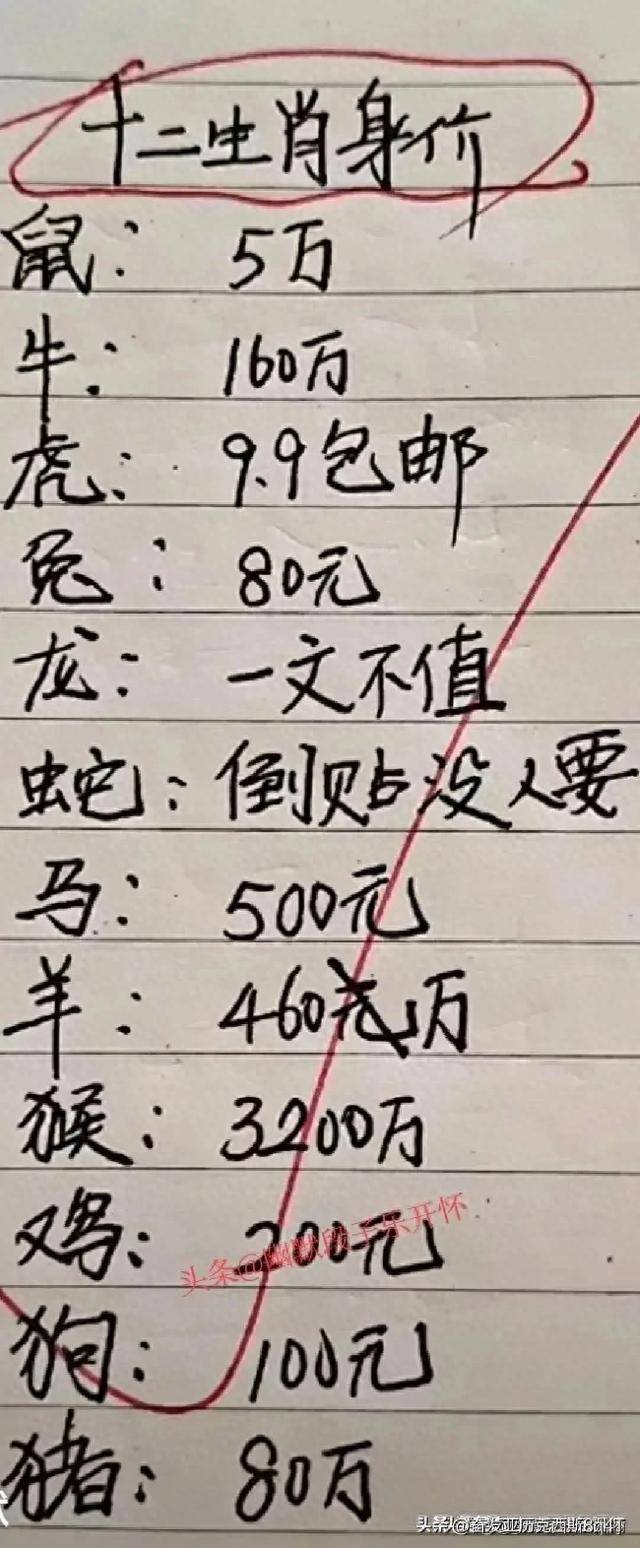 十二生肖身价
鼠： 5万
牛： 160万
虎： 9.9包邮
兔： 80元
龙： 一文不值
蛇：倒贴没人要
马： 500元
羊： 460元万
猴： 3200万
鸡： 200元
头条@幽默段子乐开怀
狗： 100元
猪： 80万